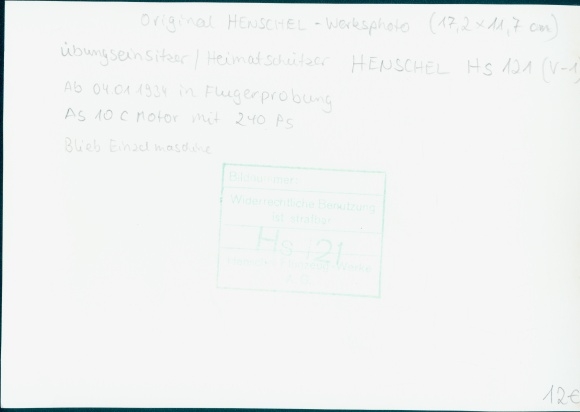 Original HENSCHEL-Werksphoto (17,2 x 11,7 cm)
Übungseinsitzer / Heimatschützer HENSCHEL Hs 121 (V-1)
Ab 04.01.1934 in Flugerprobung
As 10 C Motor mit 240 PS
Blieb Einzelmaschine
Bildnummer:
Widerrechtliche Benutzung
ist strafbar
Hs 121
12€